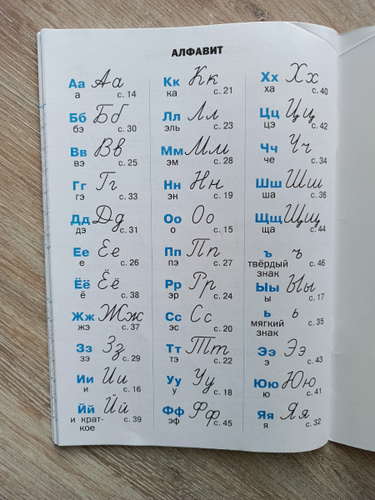 АЛФАВИТ
Аа Аа
а с. 14
Бб Бб
бэ с. 30
Вв Вв
вэ с. 25
Гг Гг
гэ с. 33
Дд Дд
дэ с. 31
Ее Ее
е с. 26
Ёё Ёё
ё с. 38
Жж Жж
жэ с. 37
Зз Зз
зэ с. 29
Ии Ии
и с. 16
Йй Йй
и крат- с. 39
кое
Кк Кк
ка с. 21
Лл Лл
эль с. 23
Мм Мм
эм с. 28
Нн Нн
эн с. 19
Оо Оо
о с. 15
Пп Пп
пэ с. 27
Рр Рр
эр с. 24
Сс Сс
эс с. 20
Тт Тт
тэ с. 22
Уу Уу
у с. 18
Фф Фф
эф с. 45
Хх Хх
ха с. 40
Цц Цц
цэ с. 42
Чч Чч
че с. 34
Шш Шш
ша с. 36
Щщ Щщ
ща с. 44
ъ ъ
твёрдый с. 46
знак
Ыы Ыы
ы с. 17
ь ь
мягкий с. 35
знак
Ээ Ээ
э с. 43
Юю Юю
ю с. 41
Яя Яя
я с. 32